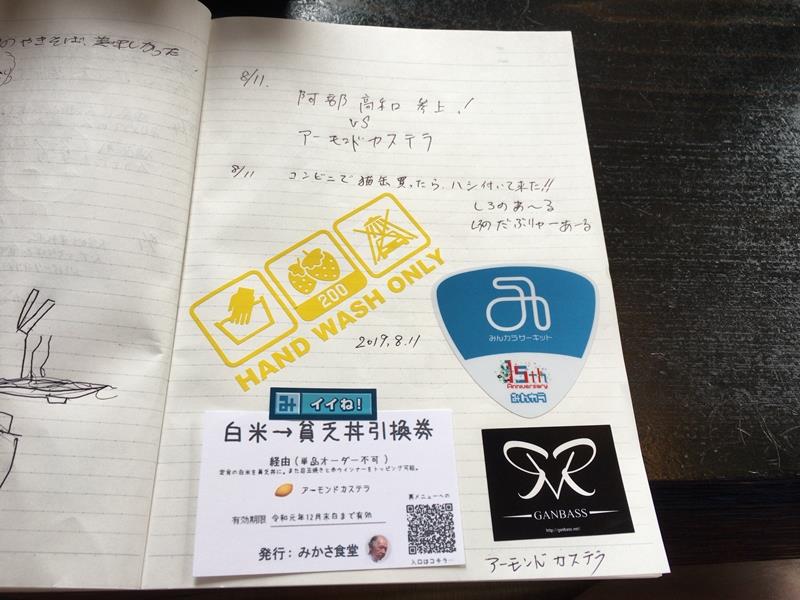 のやきそば、美味しかった
8/11.
阿部 高和 参上!
VS
アーモンドカステラ
8/11 コンビニで猫缶買ったら、ハシ付いて来た!!
しろのあ〜る
しろのだぶりゅーあーる
200
HAND WASH ONLY
2019.8.11
み
みんカラサーキット
15th
Anniversary
みんカラ
み イイね!
白米→貧乏丼引換券
経由(単品オーダー不可)
定食の白米を貧乏丼に。また目玉焼きと赤ウインナーをトッピング可能。
アーモンドカステラ
有効期限 令和元年12月末日まで有効
発行:みかさ食堂
裏メニューへの
入口はコチラ…
GANBASS
http://ganbass.net/
アーモンドカステラ